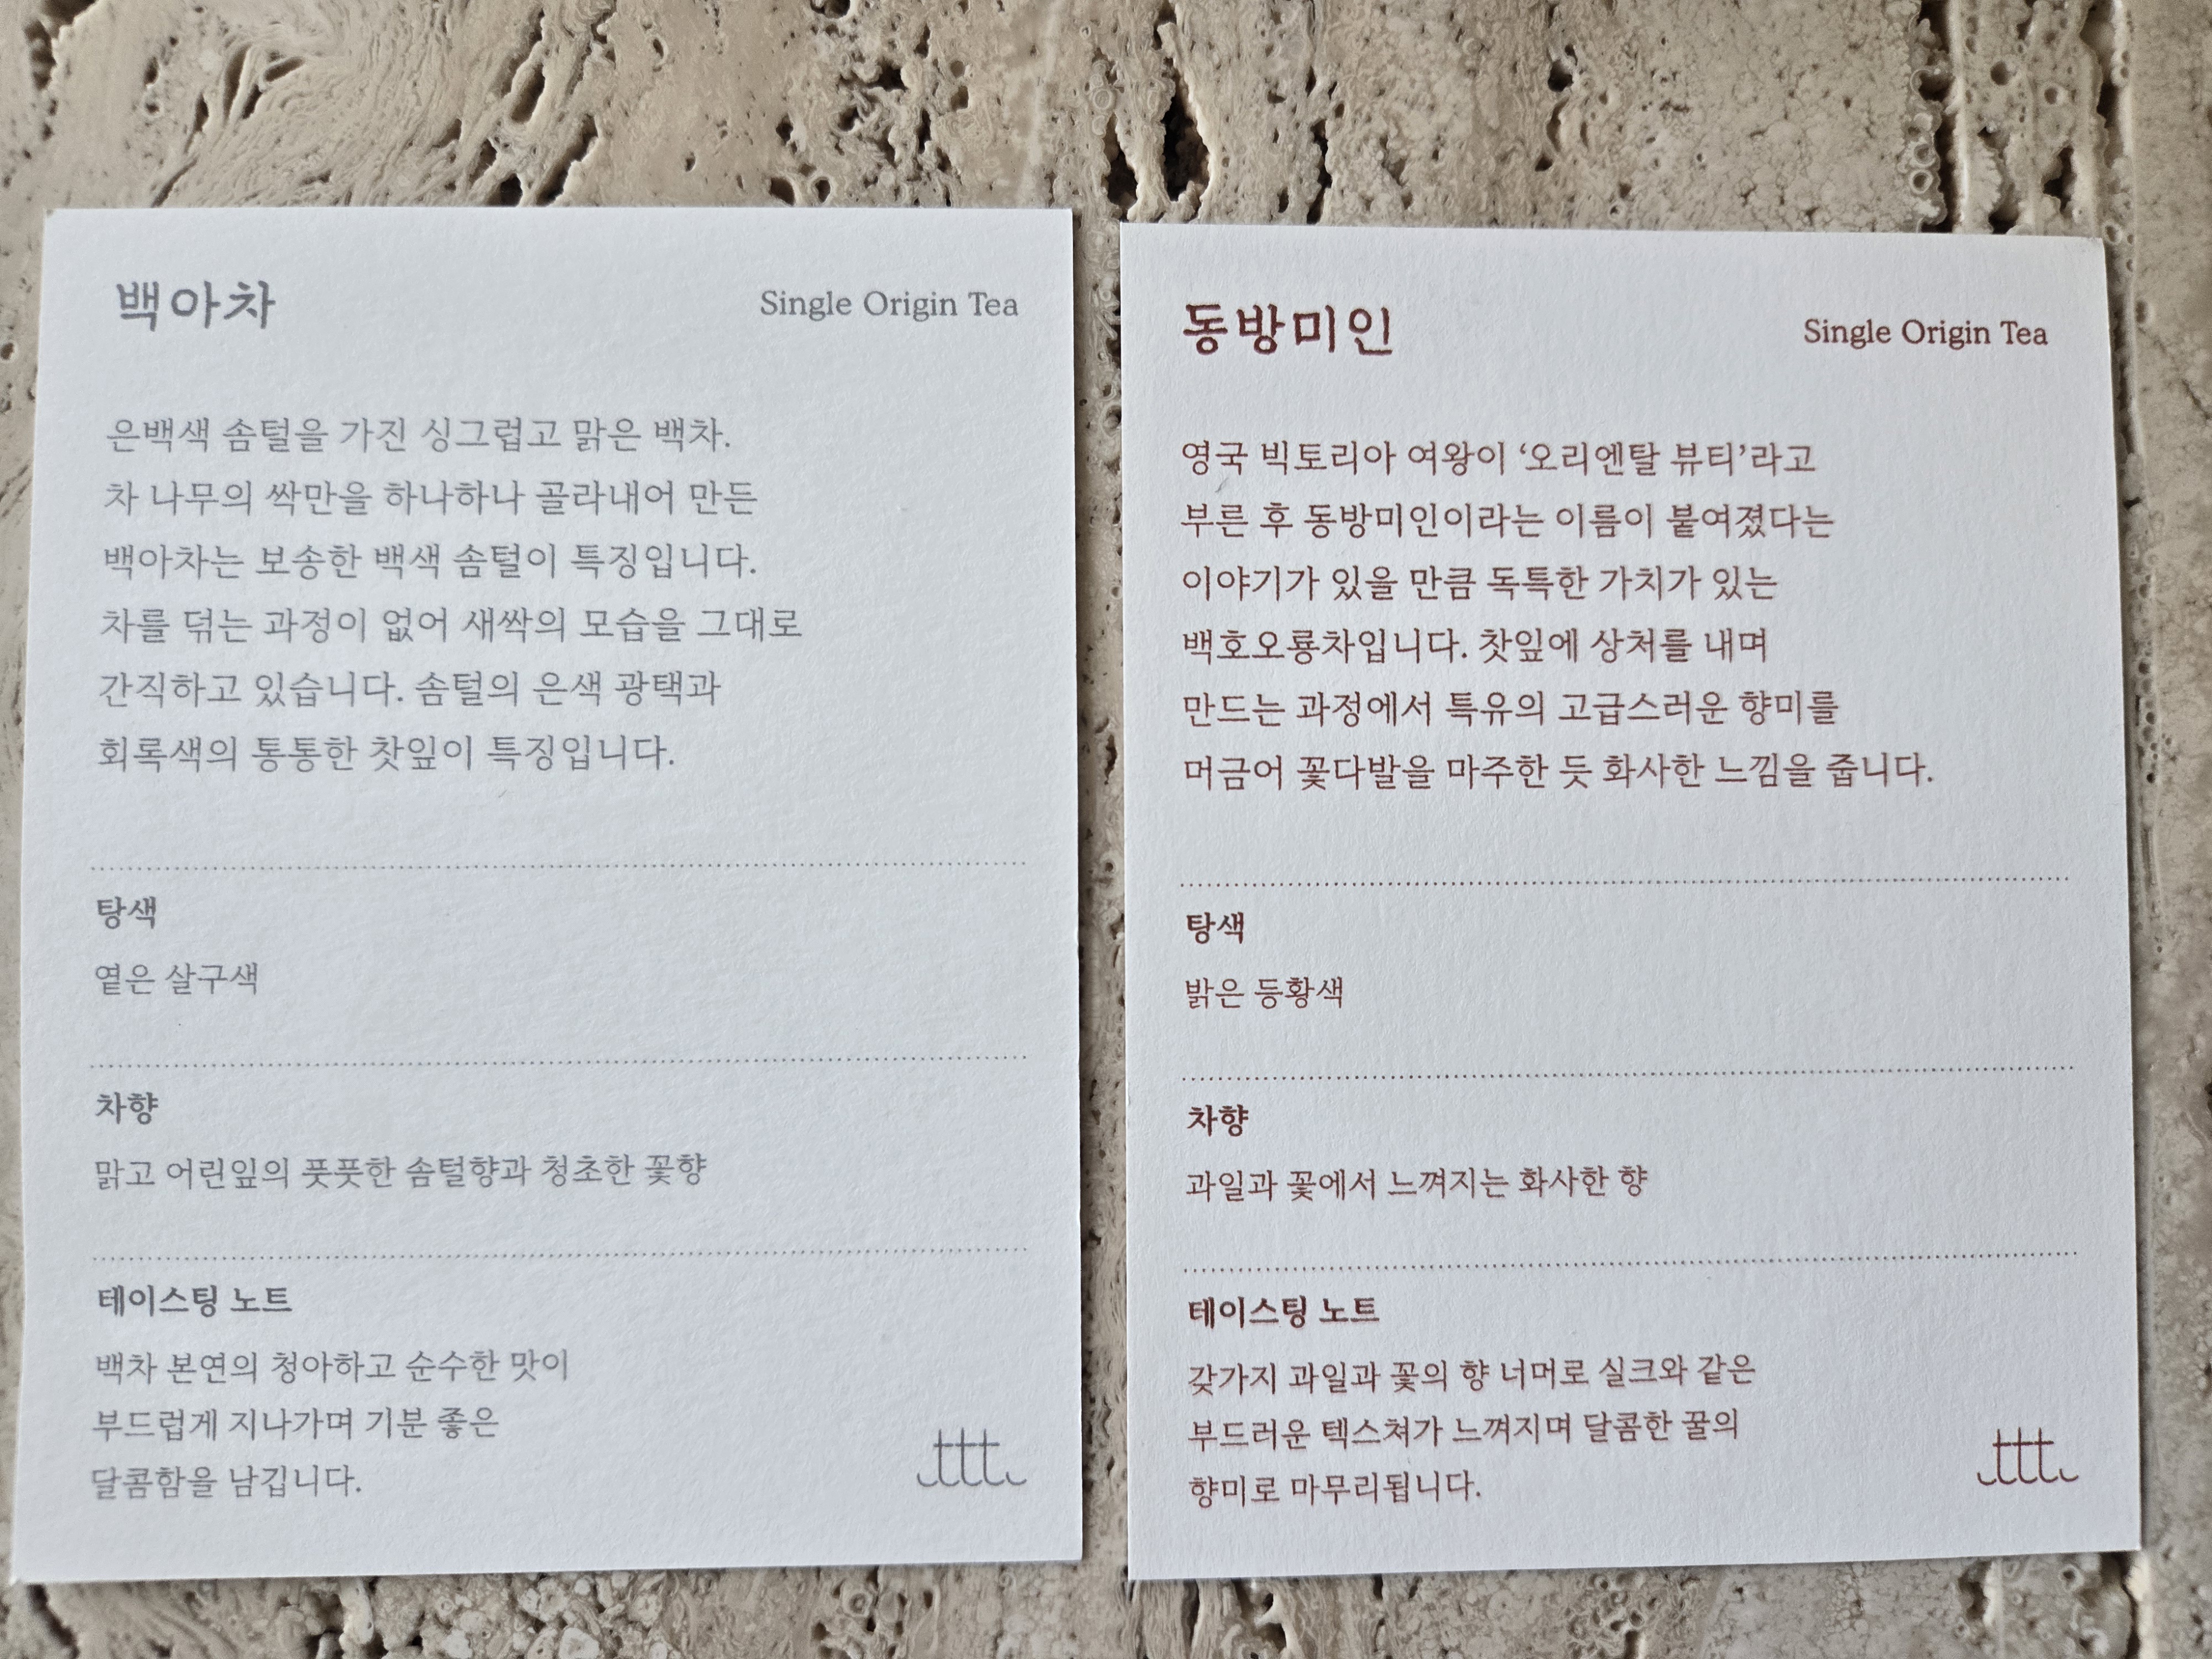 백아차
Single Origin Tea
은백색 솜털을 가진 싱그럽고 맑은 백차.
차 나무의 싹만을 하나하나 골라내어 만든
백아차는 보송한 백색 솜털이 특징입니다.
차를 덖는 과정이 없어 새싹의 모습을 그대로
간직하고 있습니다. 솜털의 은색 광택과
회록색의 통통한 찻잎이 특징입니다.
탕색
옅은 살구색
차향
맑고 어린잎의 풋풋한 솜털향과 청초한 꽃향
테이스팅 노트
백차 본연의 청아하고 순수한 맛이
부드럽게 지나가며 기분 좋은
달콤함을 남깁니다.
ttt
동방미인
Single Origin Tea
영국 빅토리아 여왕이 ‘오리엔탈 뷰티’라고
부른 후 동방미인이라는 이름이 붙여졌다는
이야기가 있을 만큼 독특한 가치가 있는
백호오룡차입니다. 찻잎에 상처를 내며
만드는 과정에서 특유의 고급스러운 향미를
머금어 꽃다발을 마주한 듯 화사한 느낌을 줍니다.
탕색
밝은 등황색
차향
과일과 꽃에서 느껴지는 화사한 향
테이스팅 노트
갖가지 과일과 꽃의 향 너머로 실크와 같은
부드러운 텍스쳐가 느껴지며 달콤한 꿀의
향미로 마무리됩니다.
ttt